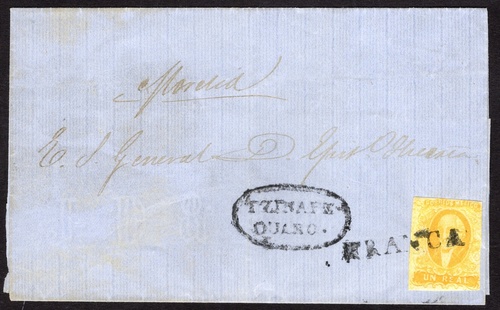 Morelia
E. S. General D. Epit.º Huerta
TZINAPE
QUARO.
FRANCA
UN REAL